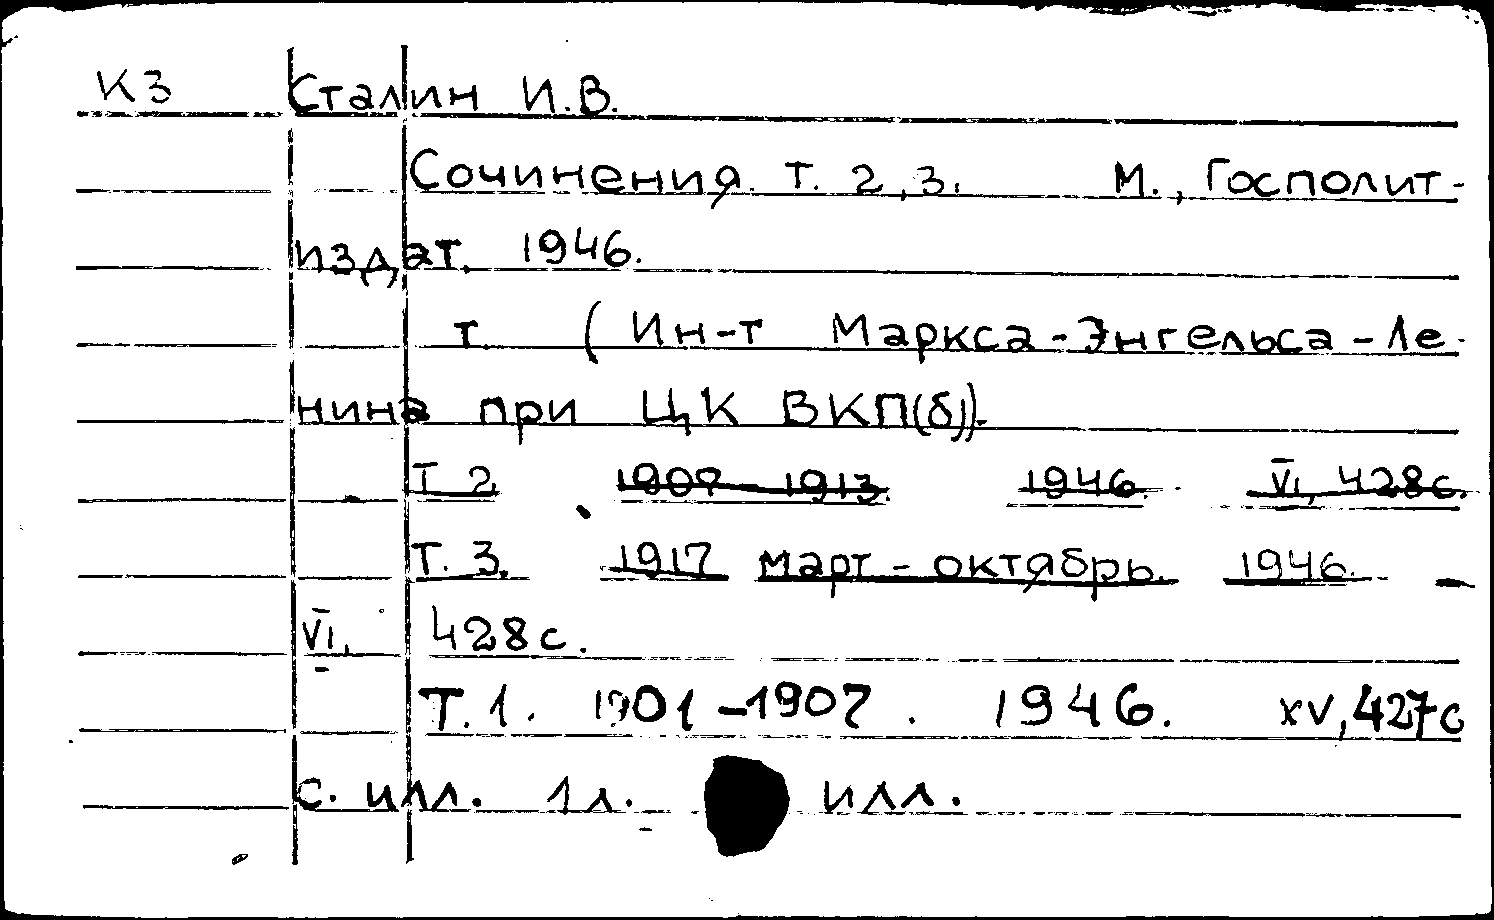 КЗ Сталин И.В.
Сочинения. Т. 2,3. М., Госполит-
издат. 1946.
т. (Ин-т Маркса-Энгельса-Ле-
нина при ЦК ВКП(б)).
Т. 2 1907-1913. 1946. VI, 428с.
Т. 3. 1917 март-октябрь. 1946. -
VI, 428с.
Т. 1. 1901-1907. 1946. XV, 427с
с. илл. 1л. илл.